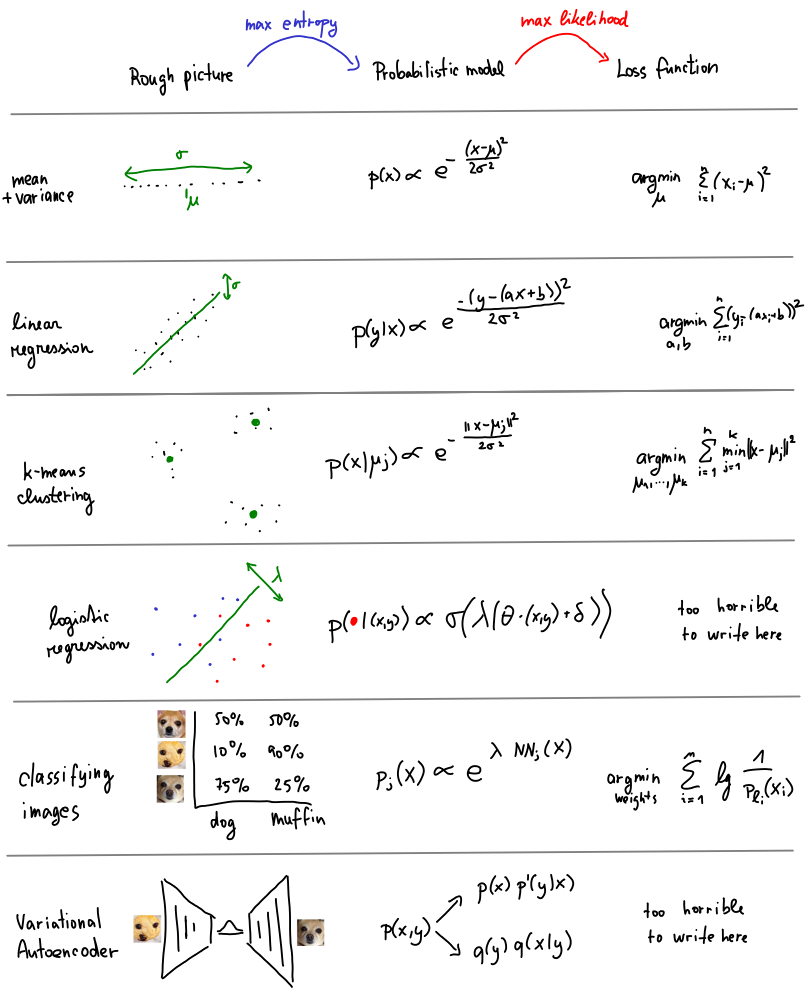 max entropy max likelihood
Rough picture Probabilistic model Loss function
mean
+ variance
σ
μ
p(x) ∝ e^{-\frac{(x-μ)^2}{2σ^2}}
argmin_μ \sum_{i=1}^{n} (x_i-μ)^2
linear
regression
σ
p(y|x) ∝ e^{\frac{-(y-(ax+b))^2}{2σ^2}}
argmin_{a,b} \sum_{i=1}^{n} (y_i-(ax_i+b))^2
k-means
clustering
p(x|μ_j) ∝ e^{-\frac{||x-μ_j||^2}{2σ^2}}
argmin_{μ_1,...,μ_k} \sum_{i=1}^{n} \min_{j=1}^{k} ||x-μ_j||^2
logistic
regression
λ
p(•|(x,y)) ∝ σ(λ(θ·(x,y)+δ))
too horrible
to write here
classifying
images
50% 50%
10% 90%
75% 25%
dog muffin
p_j(x) ∝ e^{λ NN_j(x)}
argmin_{weights} \sum_{i=1}^{n} lg \frac{1}{p_{ℓ_i}(x_i)}
Variational
Autoencoder
p(x,y)
p(x) p'(y|x)
q(y) q(x|y)
too horrible
to write here